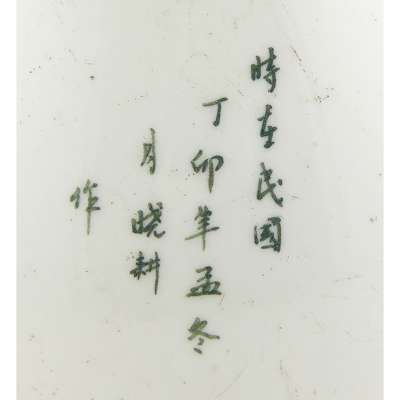 時在民国
丁卯年孟冬
月晓耕
作